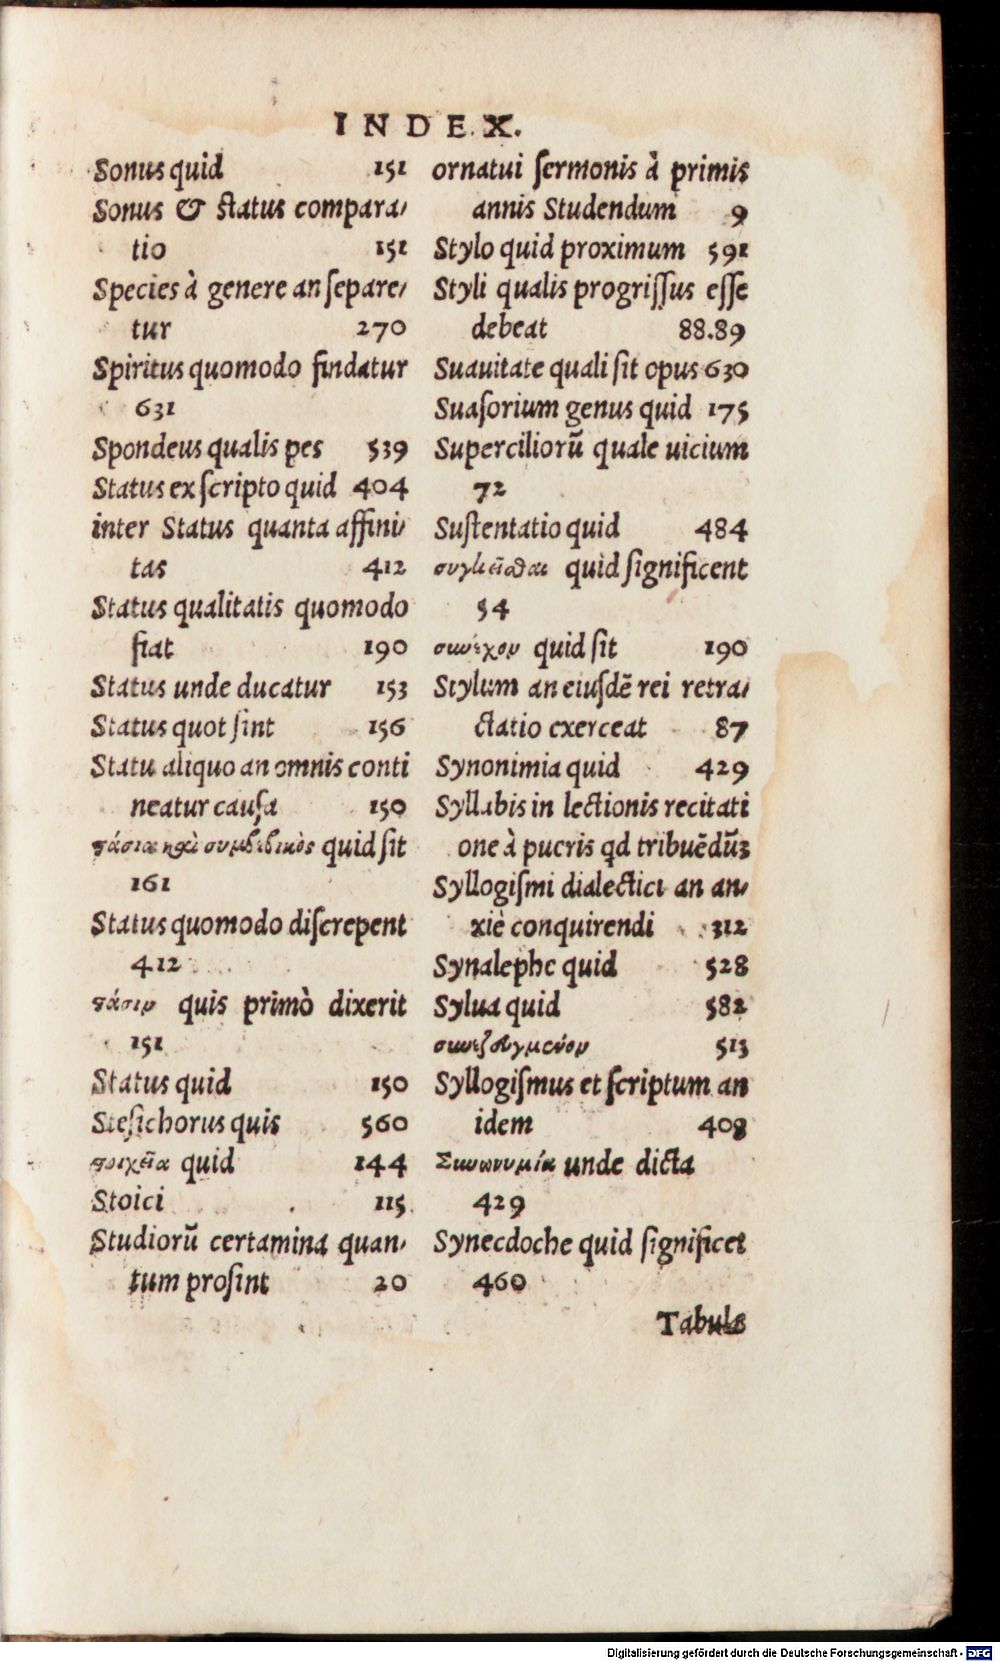 INDEX.
Sonus quid 151
Sonus & status compara/
tio 151
Species à genere an separe/
tur 270
Spiritus quomodo findatur
631
Spondeus qualis pes 539
Status ex scripto quid 404
inter Status quanta affini/
tas 412
Status qualitatis quomodo
fiat 190
Status unde ducatur 153
Status quot sint 156
Statu aliquo an omnis conti
neatur causa 150
quid sit
161
Status quomodo discrepent
412
στάσιν quis primò dixerit
151
Status quid 150
Stesichorus quis 560
στοιχεῖα quid 144
Stoici 115
Studiorū certamina quan/
tum prosint 20
ornatui sermonis à primis
annis Studendum 9
Stylo quid proximum 591
Styli qualis progrissus esse
debeat 88.89
Suauitate quali sit opus 630
Suasorium genus quid 175
Superciliorū quale uicium
72
Sustentatio quid 484
quid significent
54
συνέχον quid sit 190
Stylum an eiusdē rei retra/
ctatio exerceat 87
Synonimia quid 429
Syllabis in lectionis recitati
one à pueris qd tribuēdūꝫ
Syllogismi dialectici an an/
xiè conquirendi 312
Synalephe quid 528
Sylua quid 582
συνεζευγμένον 513
Syllogismus et scriptum an
idem 408
Συνωνυμία unde dicta
429
Synecdoche quid significet
460
Tabula
Digitalisierung gefördert durch die Deutsche Forschungsgemeinschaft - DFG